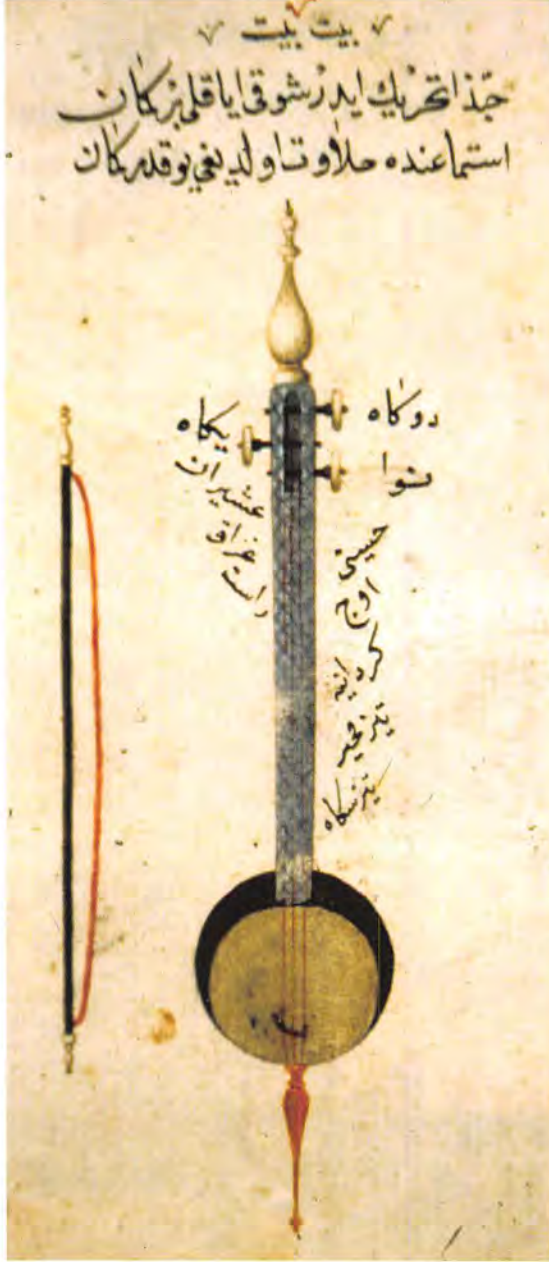 بيت بيت
حبّذا تحريك ايدر شوقى اياقلى بر كمان
استماعنده حلاوت اولديغى يوقدر كمان
دوكاه
نوا
يكاه
عشيران
عراق
راست
حسينى
اوج
كردانيه
تيز سكاه